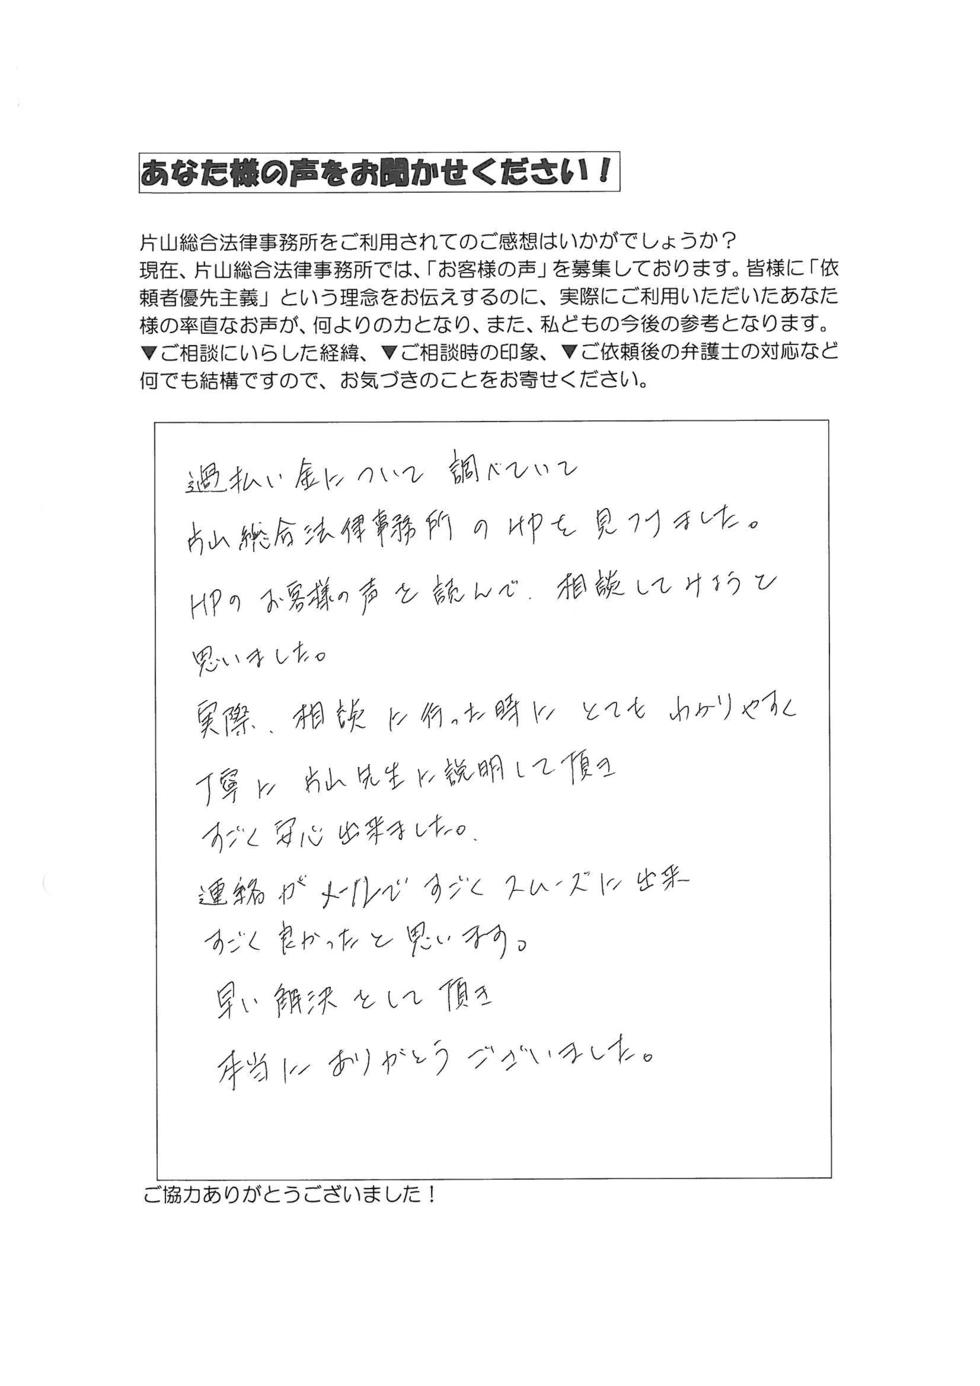 あなた様の声をお聞かせください！
片山総合法律事務所をご利用されてのご感想はいかがでしょうか？
現在、片山総合法律事務所では、「お客様の声」を募集しております。皆様に「依
頼者優先主義」という理念をお伝えするのに、実際にご利用いただいたあなた
様の率直なお声が、何よりの力となり、また、私どもの今後の参考となります。
▼ご相談にいらした経緯、▼ご相談時の印象、▼ご依頼後の弁護士の対応など
何でも結構ですので、お気づきのことをお寄せください。
過払い金について 調べていて
片山総合法律事務所のHPを見つけました。
HPのお客様の声を読んで、相談してみようと
思いました。
実際、相談に行った時にとてもわかりやすく
丁寧に片山先生に説明して頂き
すごく安心出来ました。
連絡がメールですごくスムーズに出来
すごく良かったと思います。
早い解決をして頂き
本当にありがとうございました。
ご協力ありがとうございました！